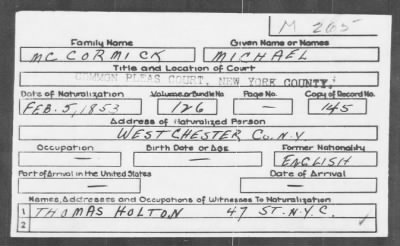 M 265
Family Name Given Name or Names
MCCORMICK MICHAEL
Title and Location of Court
COMMON PLEAS COURT, NEW YORK COUNTY.
Date of Naturalization Volume or Bundle No. Page No. Copy of Record No.
FEB. 5, 1853 126 — 145
Address of Naturalized Person
WESTCHESTER CO. N.Y.
Occupation Birth Date or Age Former Nationality
— — ENGLISH
Port of Arrival in the United States Date of Arrival
— —
Names, Addresses and Occupations of Witnesses To Naturalization
1 THOMAS HOLTON 47 ST. N.Y.C.
2